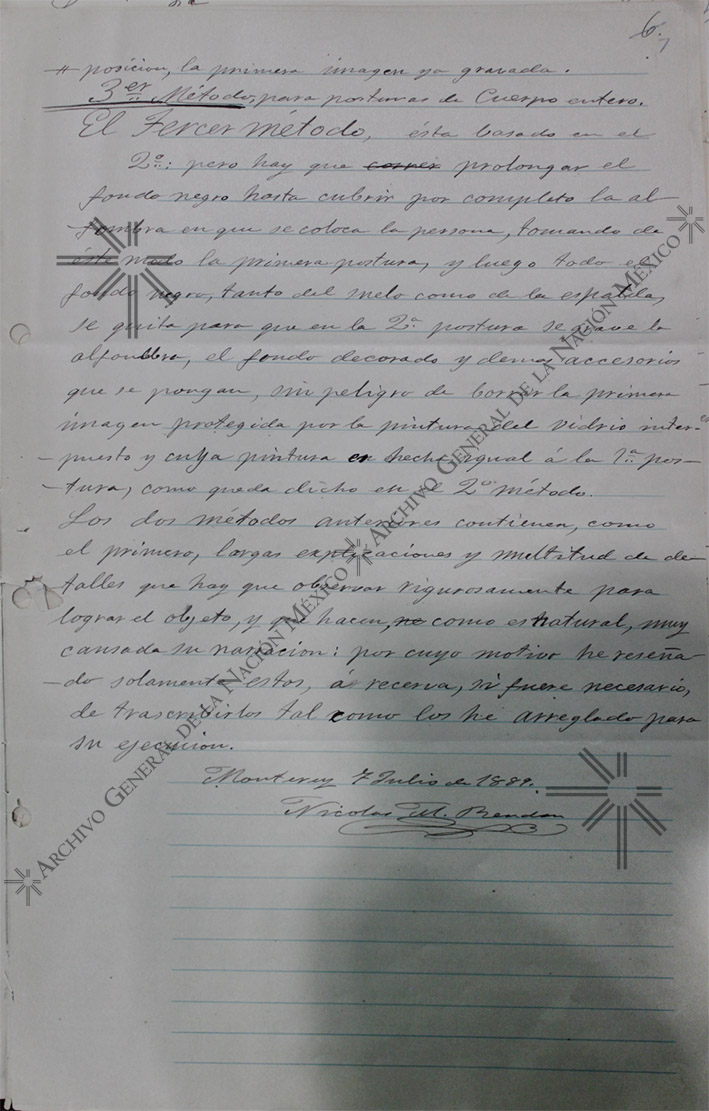 6
7
posicion, la primera imagen ya gravada.
3er Método, para posturas de Cuerpo entero.
El Tercer método, ésta basado en el
2o: pero hay que correr prolongar el
fondo negro hasta cubrir por completo la al
fombra en que se coloca la persona, tomando de
éste modo la primera postura, y luego todo el
fondo negro, tanto del suelo como de la espalda,
se quita para que en la 2a postura se grave la
alfombra, el fondo decorado y demas accesorios
que se pongan, sin peligro de borrar la primera
imagen protegida por la pintura del vidrio inter-
-puesto y cuya pintura es hecha igual á la 1a pos-
-tura, como queda dicho en el 2o método.
Los dos métodos anteriores contienen, como
el primero, largas explicaciones y multitud de de
talles que hay que observar rigurosamente para
lograr el objeto, y que hacen, como es natural, muy
cansada su narracion: por cuyo motivo he reseña-
-do solamente estos, á reserva, si fuere necesario,
de trascribirlos tal como los hé arreglado para
su ejecucion.
Monterey 7 Julio de 1889.
Nicolas M. Rendon
ARCHIVO GENERAL DE LA NACIÓN MÉXICO
ARCHIVO GENERAL DE LA NACIÓN MÉXICO